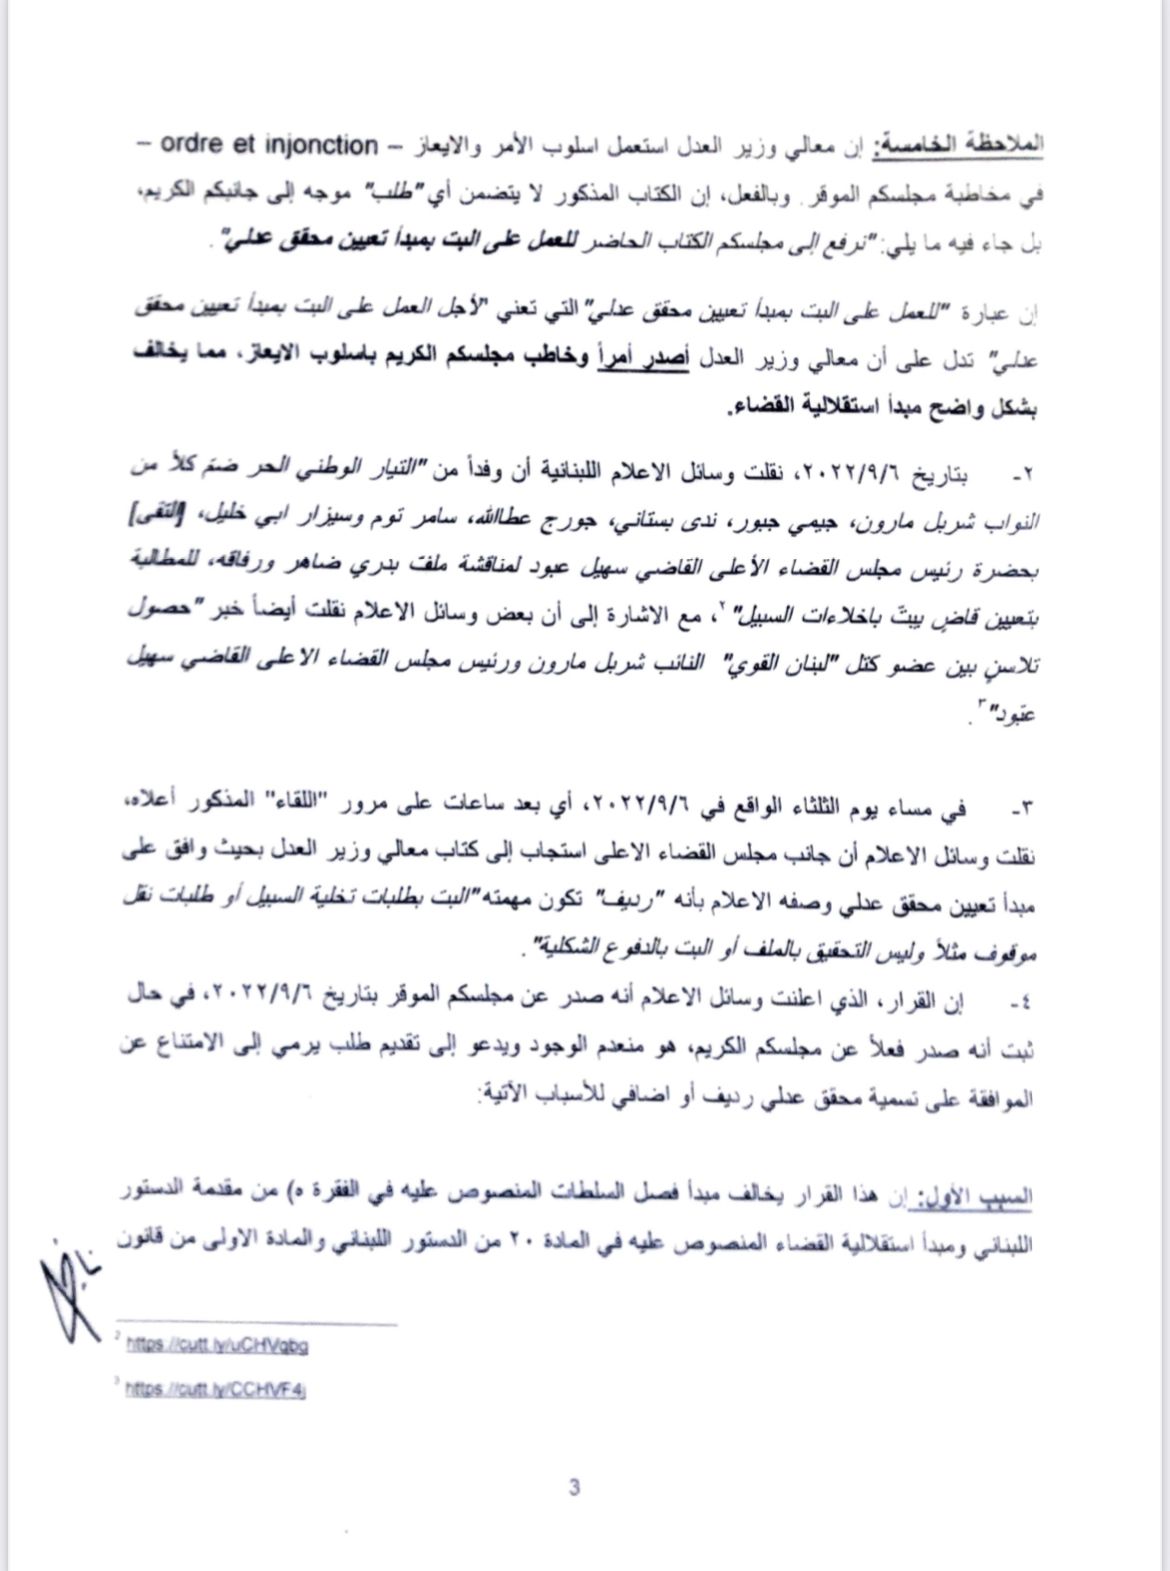 الملاحظة الخامسة: إن معالي وزير العدل استعمل اسلوب الأمر والايعاز – ordre et injonction –
في مخاطبة مجلسكم الموقر. وبالفعل، إن الكتاب المذكور لا يتضمن أي "طلب" موجه إلى جانبكم الكريم،
بل جاء فيه ما يلي: "نرفع إلى مجلسكم الكتاب الحاضر للعمل على البت بمبدأ تعيين محقق عدلي".
إن عبارة "للعمل على البت بمبدأ تعيين محقق عدلي" التي تعني "لأجل العمل على البت بمبدأ تعيين محقق
عدلي" تدل على أن معالي وزير العدل أصدر أمراً وخاطب مجلسكم الكريم باسلوب الايعاز، مما يخالف
بشكل واضح مبدأ استقلالية القضاء.
٢- بتاريخ ٢٠٢٢/٩/٦، نقلت وسائل الاعلام اللبنانية أن وفداً من "التيار الوطني الحر ضمّ كلاً من
النواب شربل مارون، جيمي جبور، ندى بستاني، جورج عطاالله، سامر توم وسيزار ابي خليل، [إلتقى]
بحضرة رئيس مجلس القضاء الأعلى القاضي سهيل عبود لمناقشة ملف بدري ضاهر ورفاقه، للمطالبة
بتعيين قاضٍ يبتّ باخلاءات السبيل"٢، مع الاشارة إلى أن بعض وسائل الاعلام نقلت أيضاً خبر "حصول
تلاسنٍ بين عضو كتل "لبنان القوي" النائب شربل مارون ورئيس مجلس القضاء الاعلى القاضي سهيل
عبّود"٣.
٣- في مساء يوم الثلثاء الواقع في ٢٠٢٢/٩/٦، أي بعد ساعات على مرور "اللقاء" المذكور أعلاه،
نقلت وسائل الاعلام أن جانب مجلس القضاء الاعلى استجاب إلى كتاب معالي وزير العدل بحيث وافق على
مبدأ تعيين محقق عدلي وصفه الاعلام بأنه "رديف" تكون مهمته "البت بطلبات تخلية السبيل أو طلبات نقل
موقوف مثلاً وليس التحقيق بالملف أو البت بالدفوع الشكلية".
٤- إن القرار، الذي اعلنت وسائل الاعلام أنه صدر عن مجلسكم الموقر بتاريخ ٢٠٢٢/٩/٦، في حال
ثبت أنه صدر فعلاً عن مجلسكم الكريم، هو منعدم الوجود ويدعو إلى تقديم طلب يرمي إلى الامتناع عن
الموافقة على تسمية محقق عدلي رديف أو اضافي للأسباب الآتية:
السبب الأول: إن هذا القرار يخالف مبدأ فصل السلطات المنصوص عليه في الفقرة ه) من مقدمة الدستور
اللبناني ومبدأ استقلالية القضاء المنصوص عليه في المادة ٢٠ من الدستور اللبناني والمادة الاولى من قانون
2 https://cutt.ly/uCHVqbg
3 https://cutt.ly/CCHVF4j
3